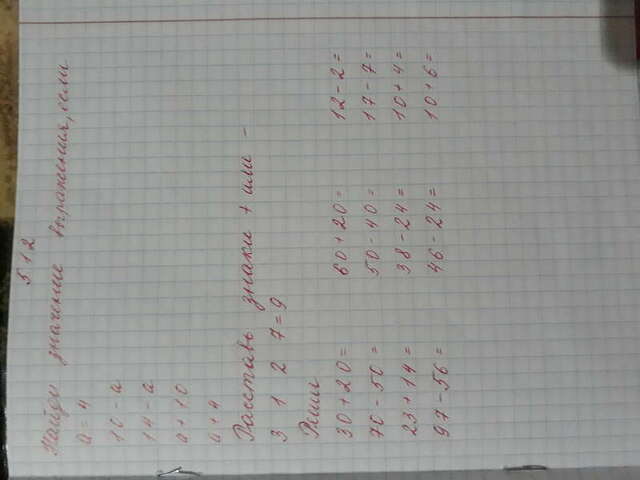 512
Найди значение выражения, если
a = 4
16 - a
14 - a
a + 10
a + 4
Расставь знаки + или -
3 1 2 7 = 9
Реши
30 + 20 = 60 + 20 = 12 - 2 =
70 - 50 = 50 - 40 = 17 - 7 =
23 + 14 = 38 - 24 = 10 + 4 =
97 - 56 = 46 - 24 = 10 + 6 =